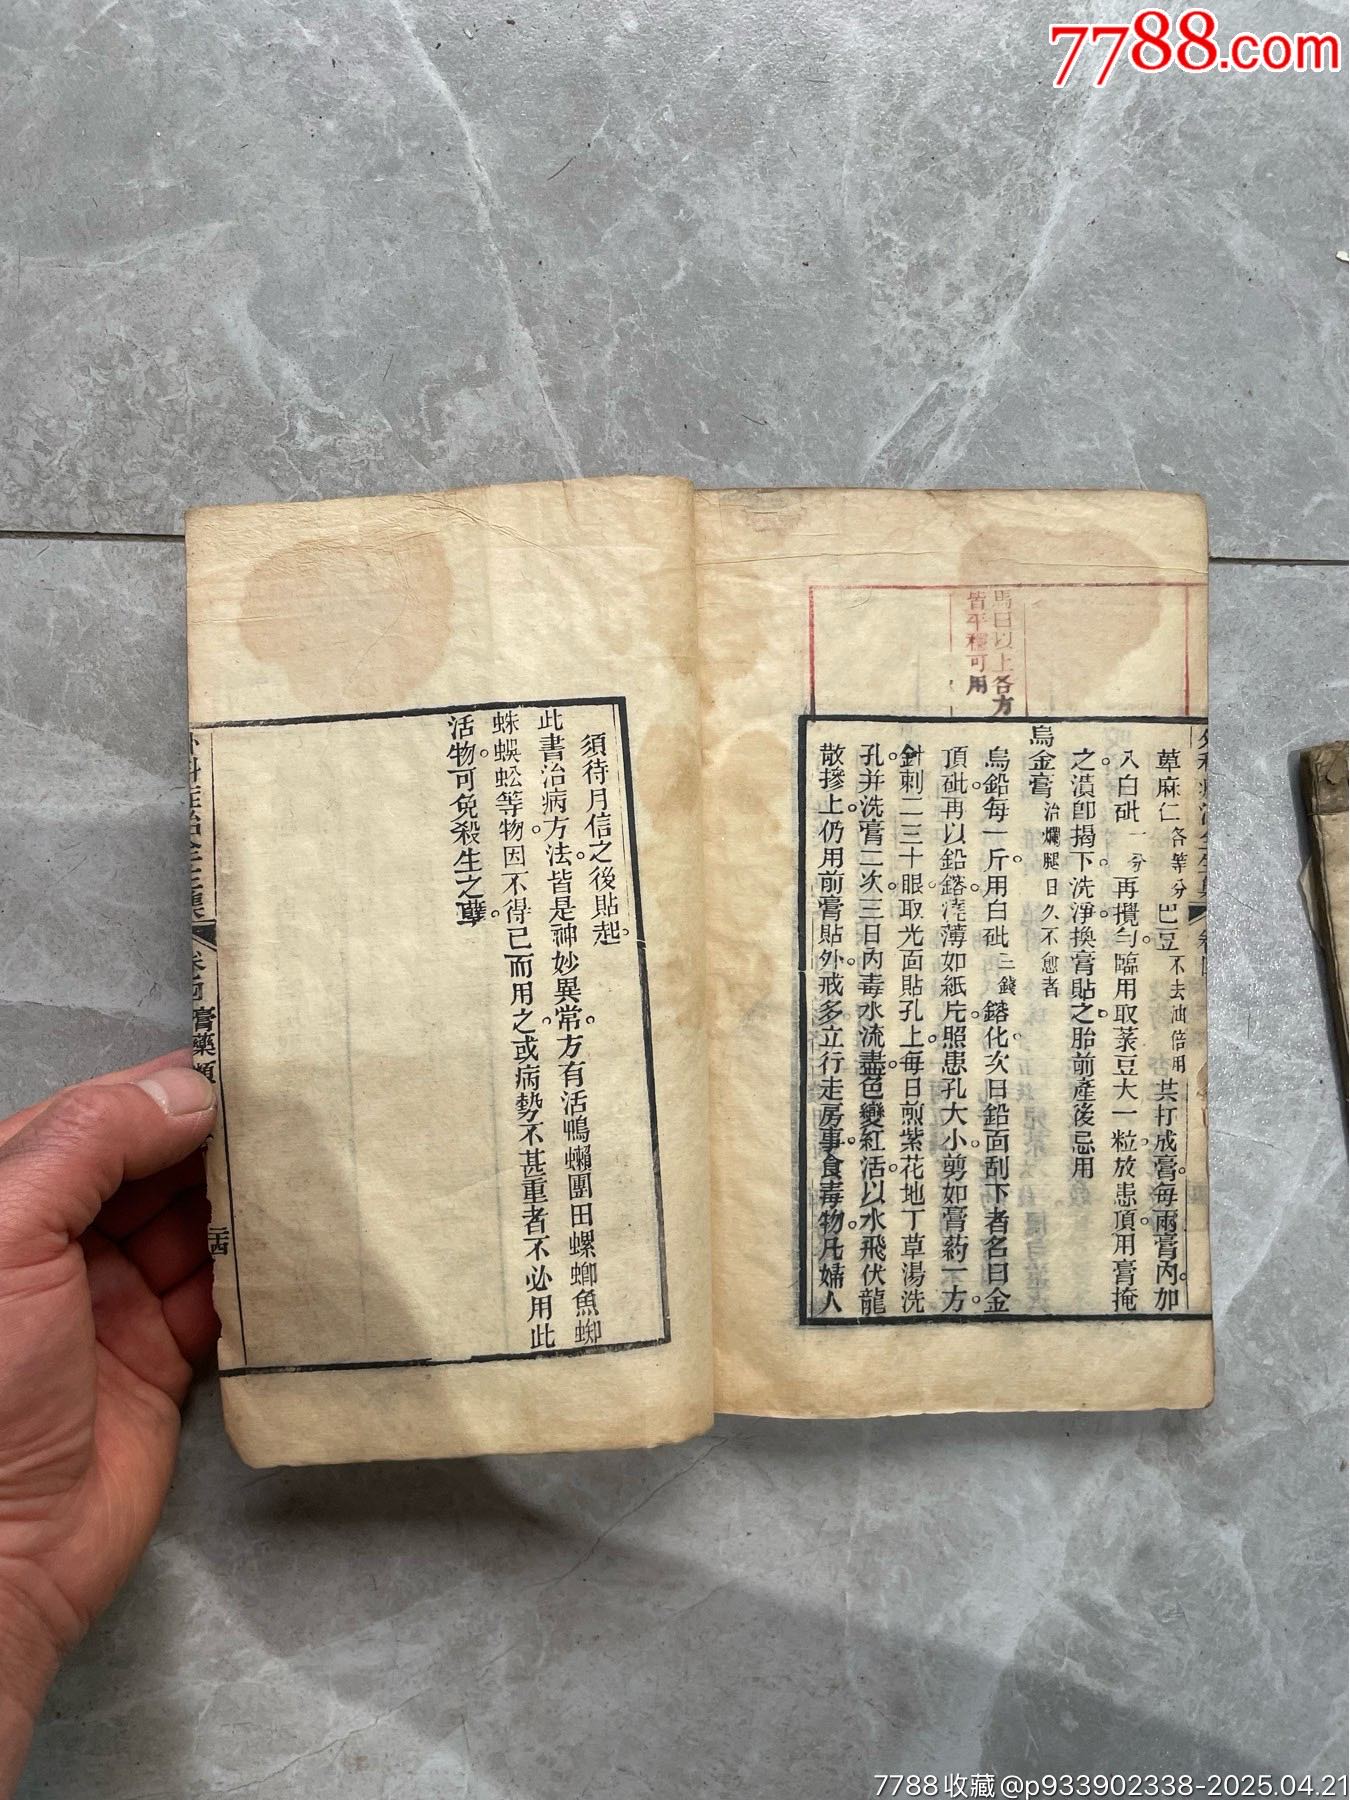 7788.com
馬曰以上各方
皆平穩可用
萆麻仁各等分巴豆不去油倍用共打成膏每兩膏內加
入白砒一分再攪勻臨用取菉豆大一粒放患頂用膏掩
之潰卽揭下洗淨換膏貼之胎前產後忌用
烏金膏治爛腿日久不愈者
烏鉛每一斤用白砒三錢鎔化次日鉛面刮下者名曰金
頂砒再以鉛鎔澆薄如紙片照患孔大小剪如膏葯一方
針刺二三十眼取光面貼孔上每日煎紫花地丁草湯洗
孔并洗膏二次三日內毒水流盡色變紅活以水飛伏龍
散摻上仍用前膏貼外戒多立行走房事食毒物凡婦人
須待月信之後貼起
此書治病方法皆是神妙異常方有活鴨蠏團田螺鯽魚蜘
蛛蜈蚣等物因不得已而用之或病勢不甚重者不必用此
活物可免殺生之孽
外科症治全生集 卷四 膏藥類 二十四
7788收藏@p933902338-2025.04.21